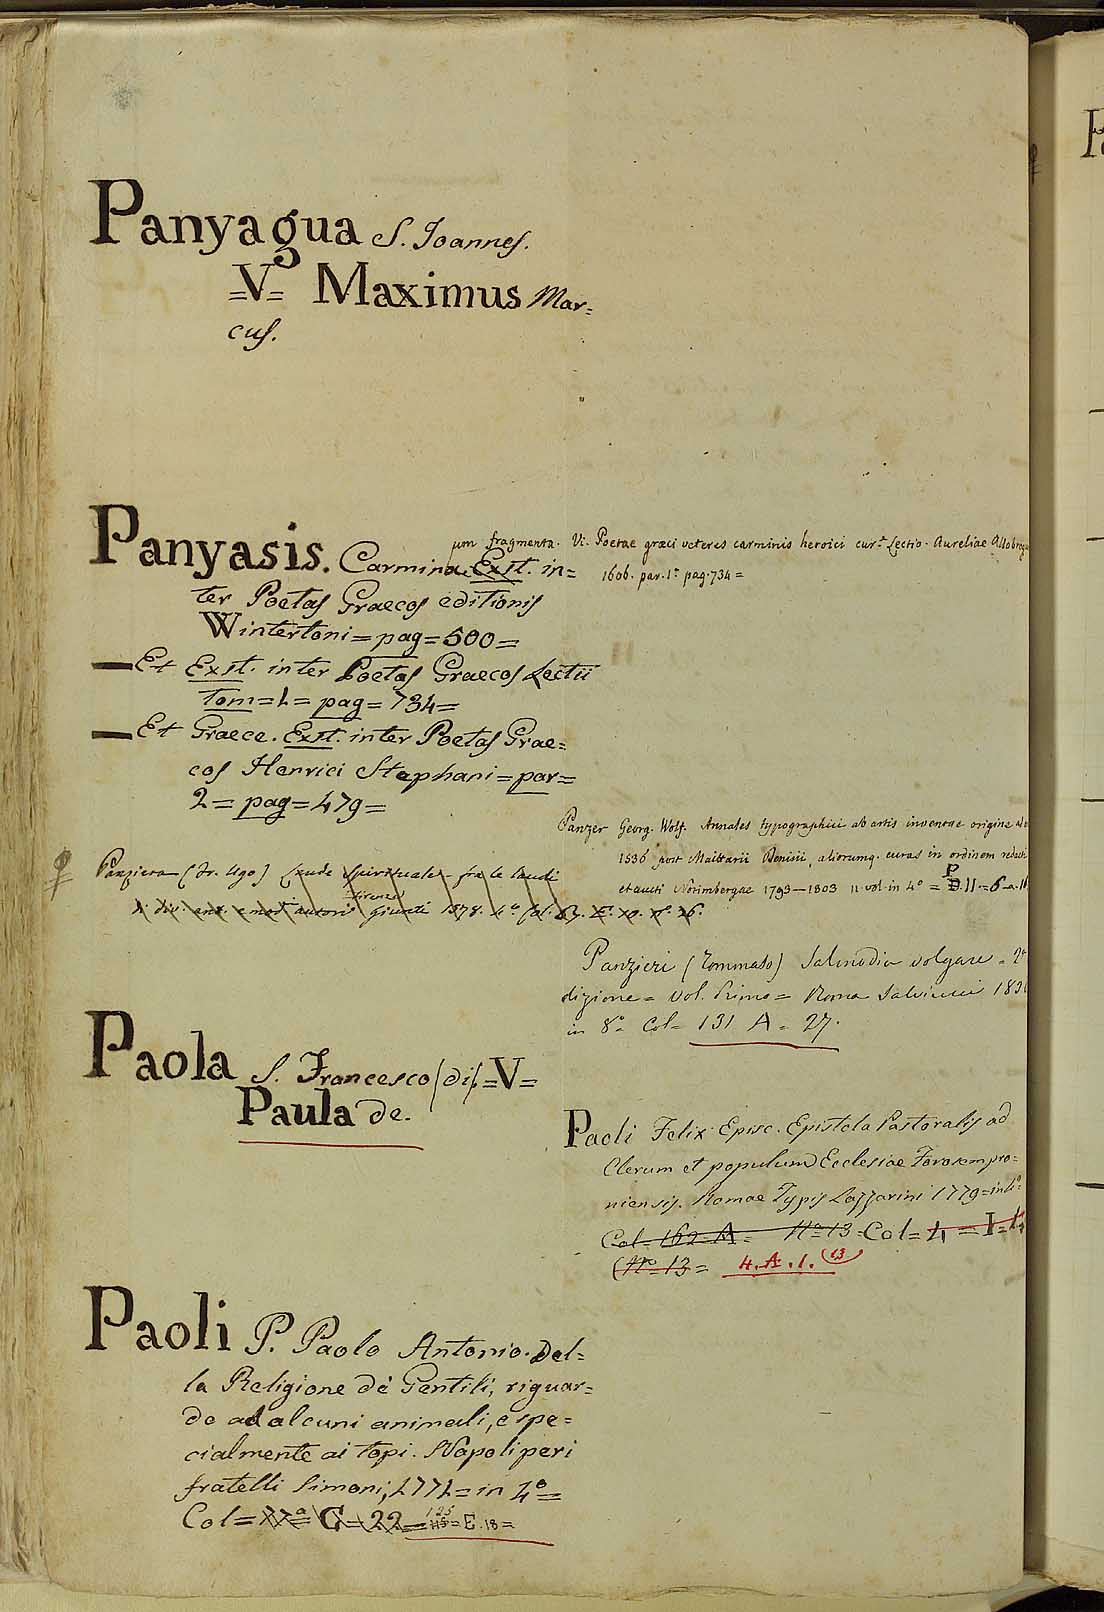 Panyagua S. Joannes.
=V= Maximus Mar=
cus.
Panyasis. Carmina. Exst. in=
ter Poetas Graecos editionis
Wintertoni=pag=500=
Et Exst. inter Poetas Graecos Lectii
Tom=1=pag=734=
Et Graece. Exst. inter Poetas Grae=
cos Henrici Stephani=par=
2=pag=479=
um fragmenta. Vi. Poetae graeci veteres carminis heroici cur.te Lectio. Aureliae Allobrog
1606. par. 1a pag. 734=
Panzer Georg. Wolf. Annales typographici ab artis inventae origine ad
1536 post Maittarii Denisii, aliorumq. curas in ordinem redacti
et aucti Norimbergae 1793–1803 11 vol. in 4o = P. D.11.=6=a.11
Panziera (fr. Ugo) Laude Spirituale fra le laudi
di div. ant. e mod. autori Firenze Giunti 1578. 4o Col.
Panzieri (Tommaso) Salmodia volgare = 2a
dizione = vol. Primo = Roma Salviucci 183
in 8o Col= 131 A = 27.
Paola S. Francesco (di) =V=
Paula de.
Paoli Felix Episc. Epistola Pastoralis ad
Clerum et populum Ecclesiae Forosempro=
niensis. Romae Typis Lazzarini 1779=in 4o=
Col=162=A= No=13=Col=4=I=4
(No=13= 4.A.1.(13
Paoli P. Paolo Antonio. Del=
la Religione de' Gentili, riguar=
do ad alcuni animali, e spe=
cialmente ai topi. Napoli per i
fratelli Simoni; 1771=in 4o=
Col=77a=G=22= 125 =E.18=